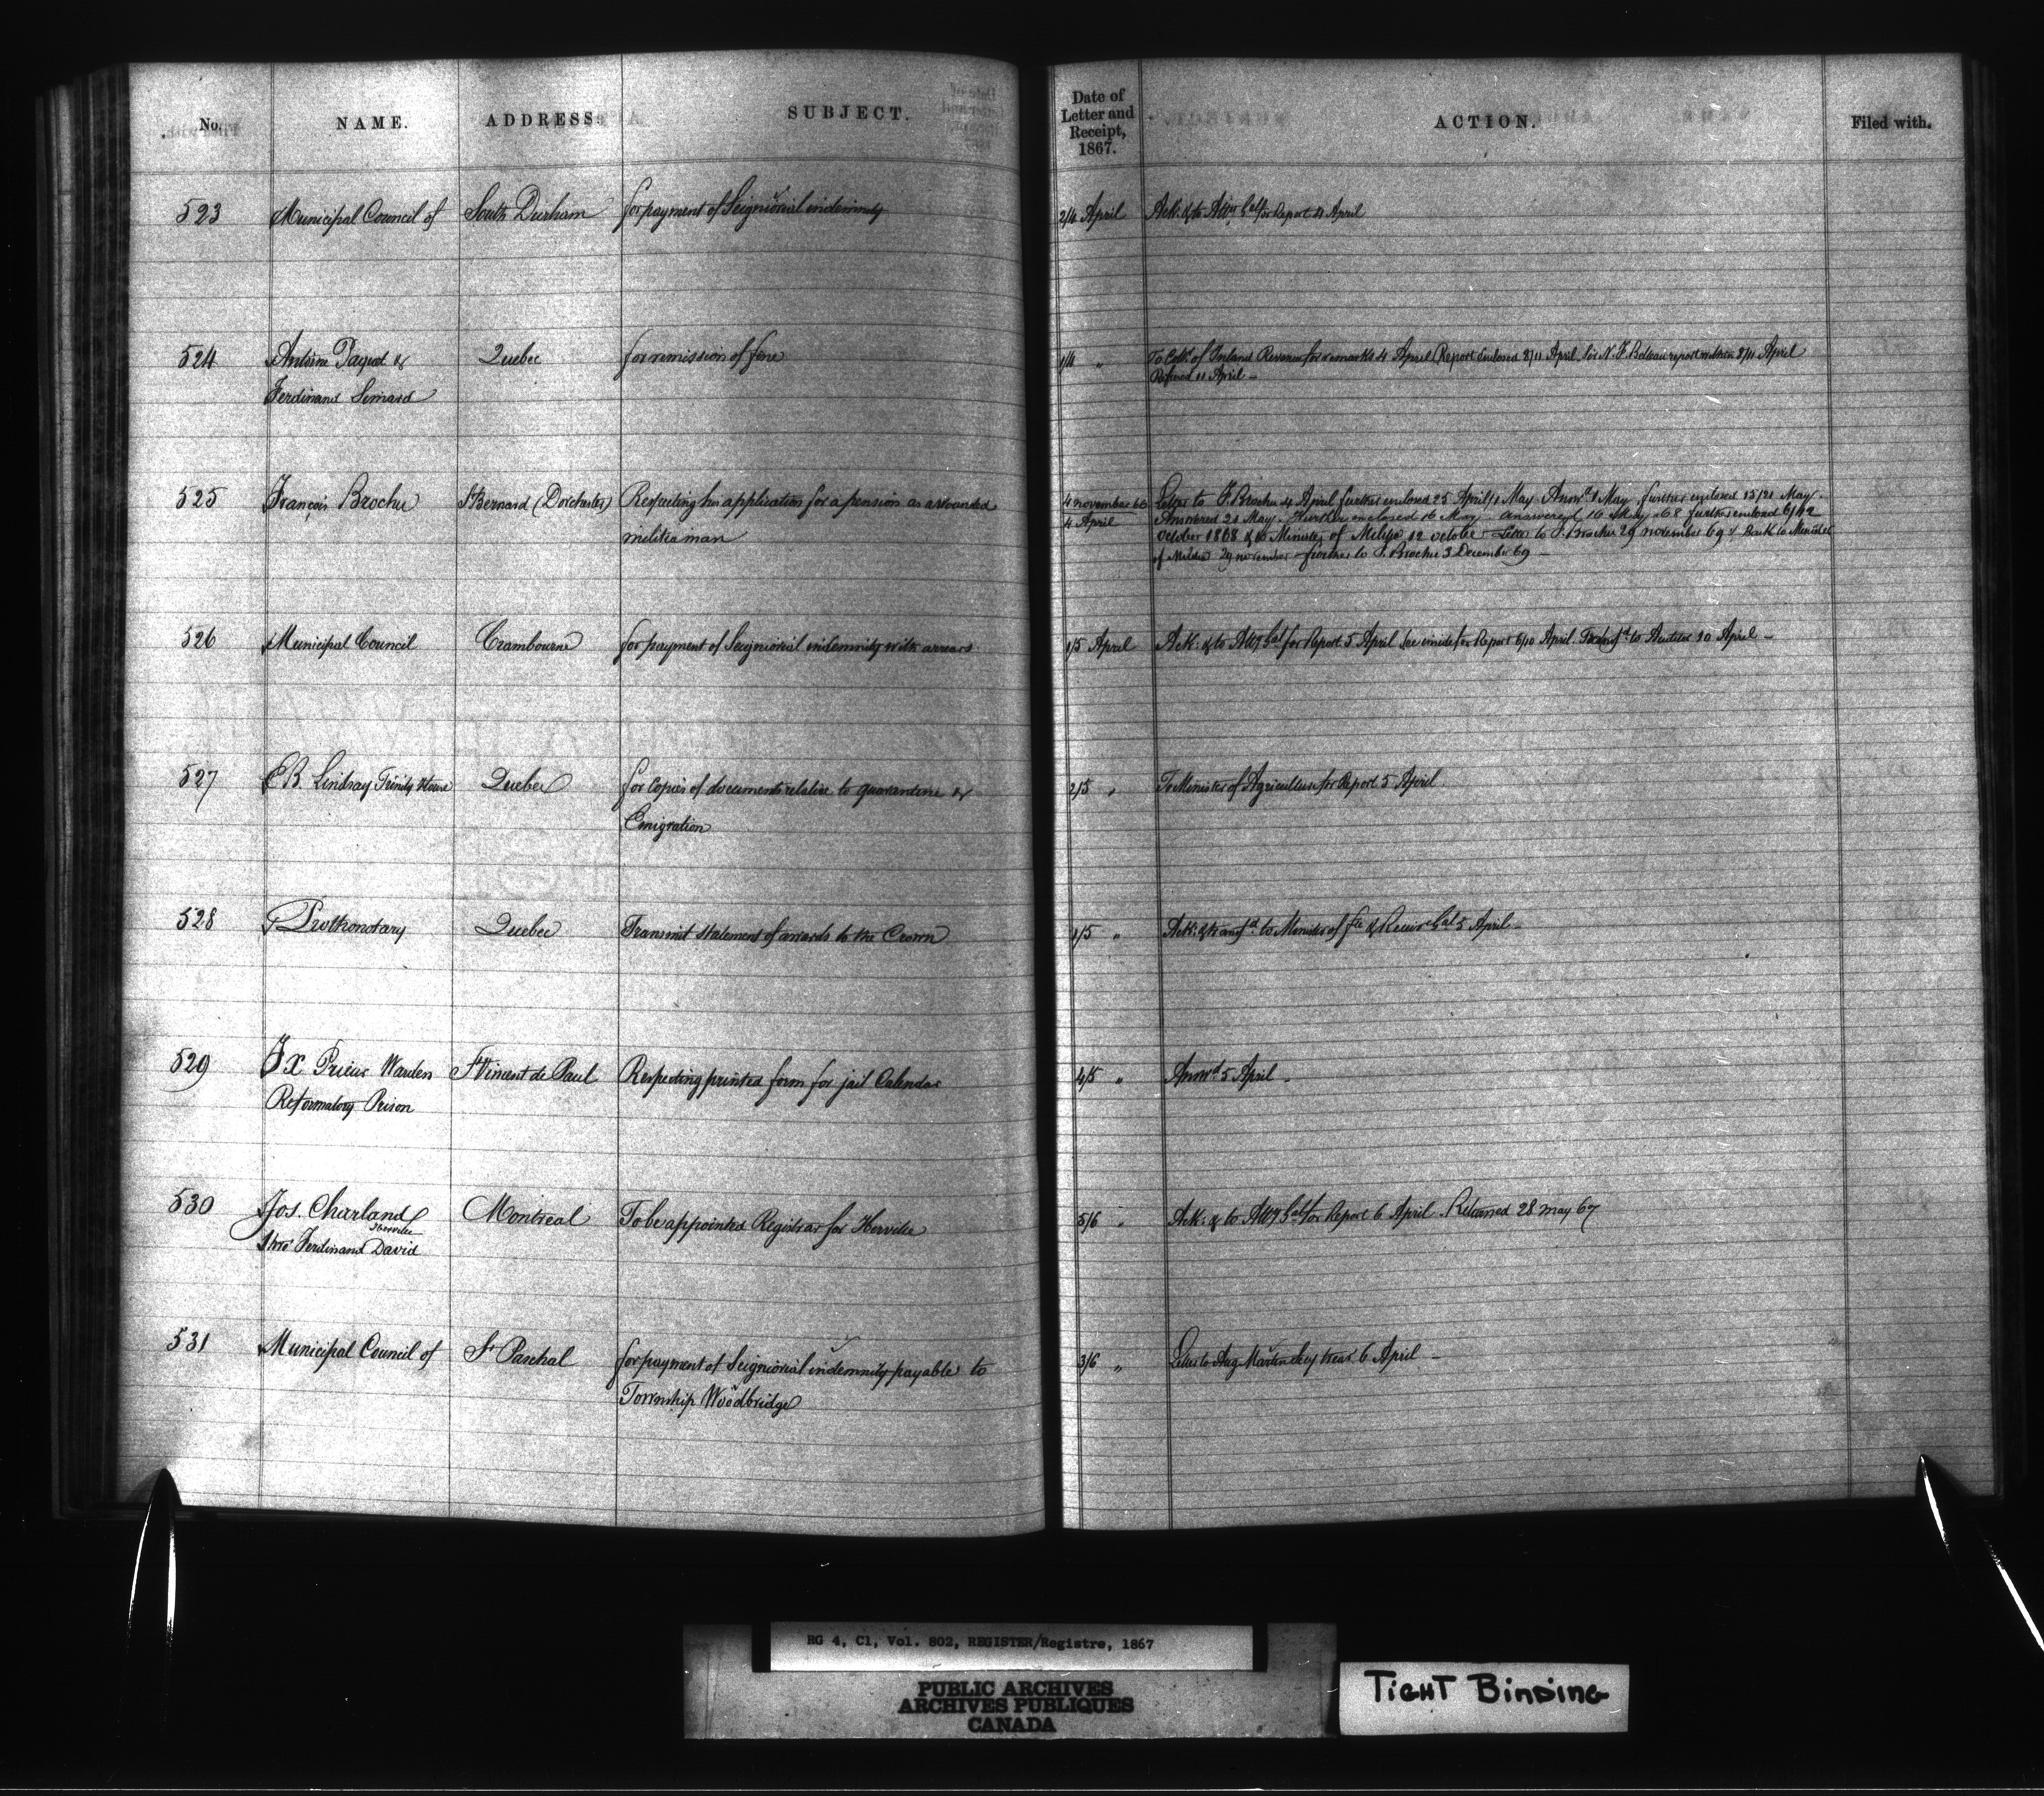 No. NAME. ADDRESS. SUBJECT. Date of Letter and Receipt, 1867. ACTION. Filed with.
523 Municipal Council of South Durham for payment of Seigniorial indemnity 2/4 April Ack: & to Atty Gal for Report 4 April
524 Antoine Paquet & Quebec for remission of fine 1/4 " To Com of Inland Revenue for remarks 4 April Report enclosed 8/11 April. Sir N. F. Belleau report within 8/11 April
Ferdinand Simard Refused 11 April -
525 François Brochu St Bernard (Dorchester) Respecting his application for a pension as a wounded 4 November 66 Letter to F. Brochu 4 April further enclosed 25 April/1 May Answd 1 May, further enclosed 15/21 May.
militia man 4 April Answered 21 May. Further enclosed 16 May answered 16 May 68 further enclosed 6/12
October 1868 & to Minister of Militia 12 October - Letter to F. Brochu 29 november 69 & Back to Minister
of Militia 29 november further to F. Brochu 3 December 69 -
526 Municipal Council Crambourne for payment of Seigniorial indemnity with arrears 1/5 April Ack: & to Atty Gal for Report 5 April see inside for Report 6/10 April. Transfd to Auditor 10 April -
527 E B. Lindsay Trinity House Quebec for Copies of documents relative to quarantine & 2/5 " To Minister of Agriculture for Report 5 April.
Emigration
528 Prothonotary Quebec Transmit statement of awards to the Crown 1/5 " Ack: & transfd to Minister of fce & Receivr Gal 5 April -
529 F X Prieur Warden St Vincent de Paul Respecting printed form for jail Calendar 4/5 " Answd 5 April -
Reformatory Prison
530 Jos. Charland Montreal To be appointed Registrar for Iberville 5/6 " Ack: & to Atty Gal for Report 6 April. Returned 28 may 67
Iberville
thro' Ferdinand David
531 Municipal Council of St Paschal for payment of Seigniorial indemnity payable to 3/6 " Letter to Aug Martin Secy treas 6 April -
Township Woodbridge
RG 4, C1, Vol. 802, REGISTER/Registre, 1867
PUBLIC ARCHIVES
ARCHIVES PUBLIQUES
CANADA
TIGHT BINDING